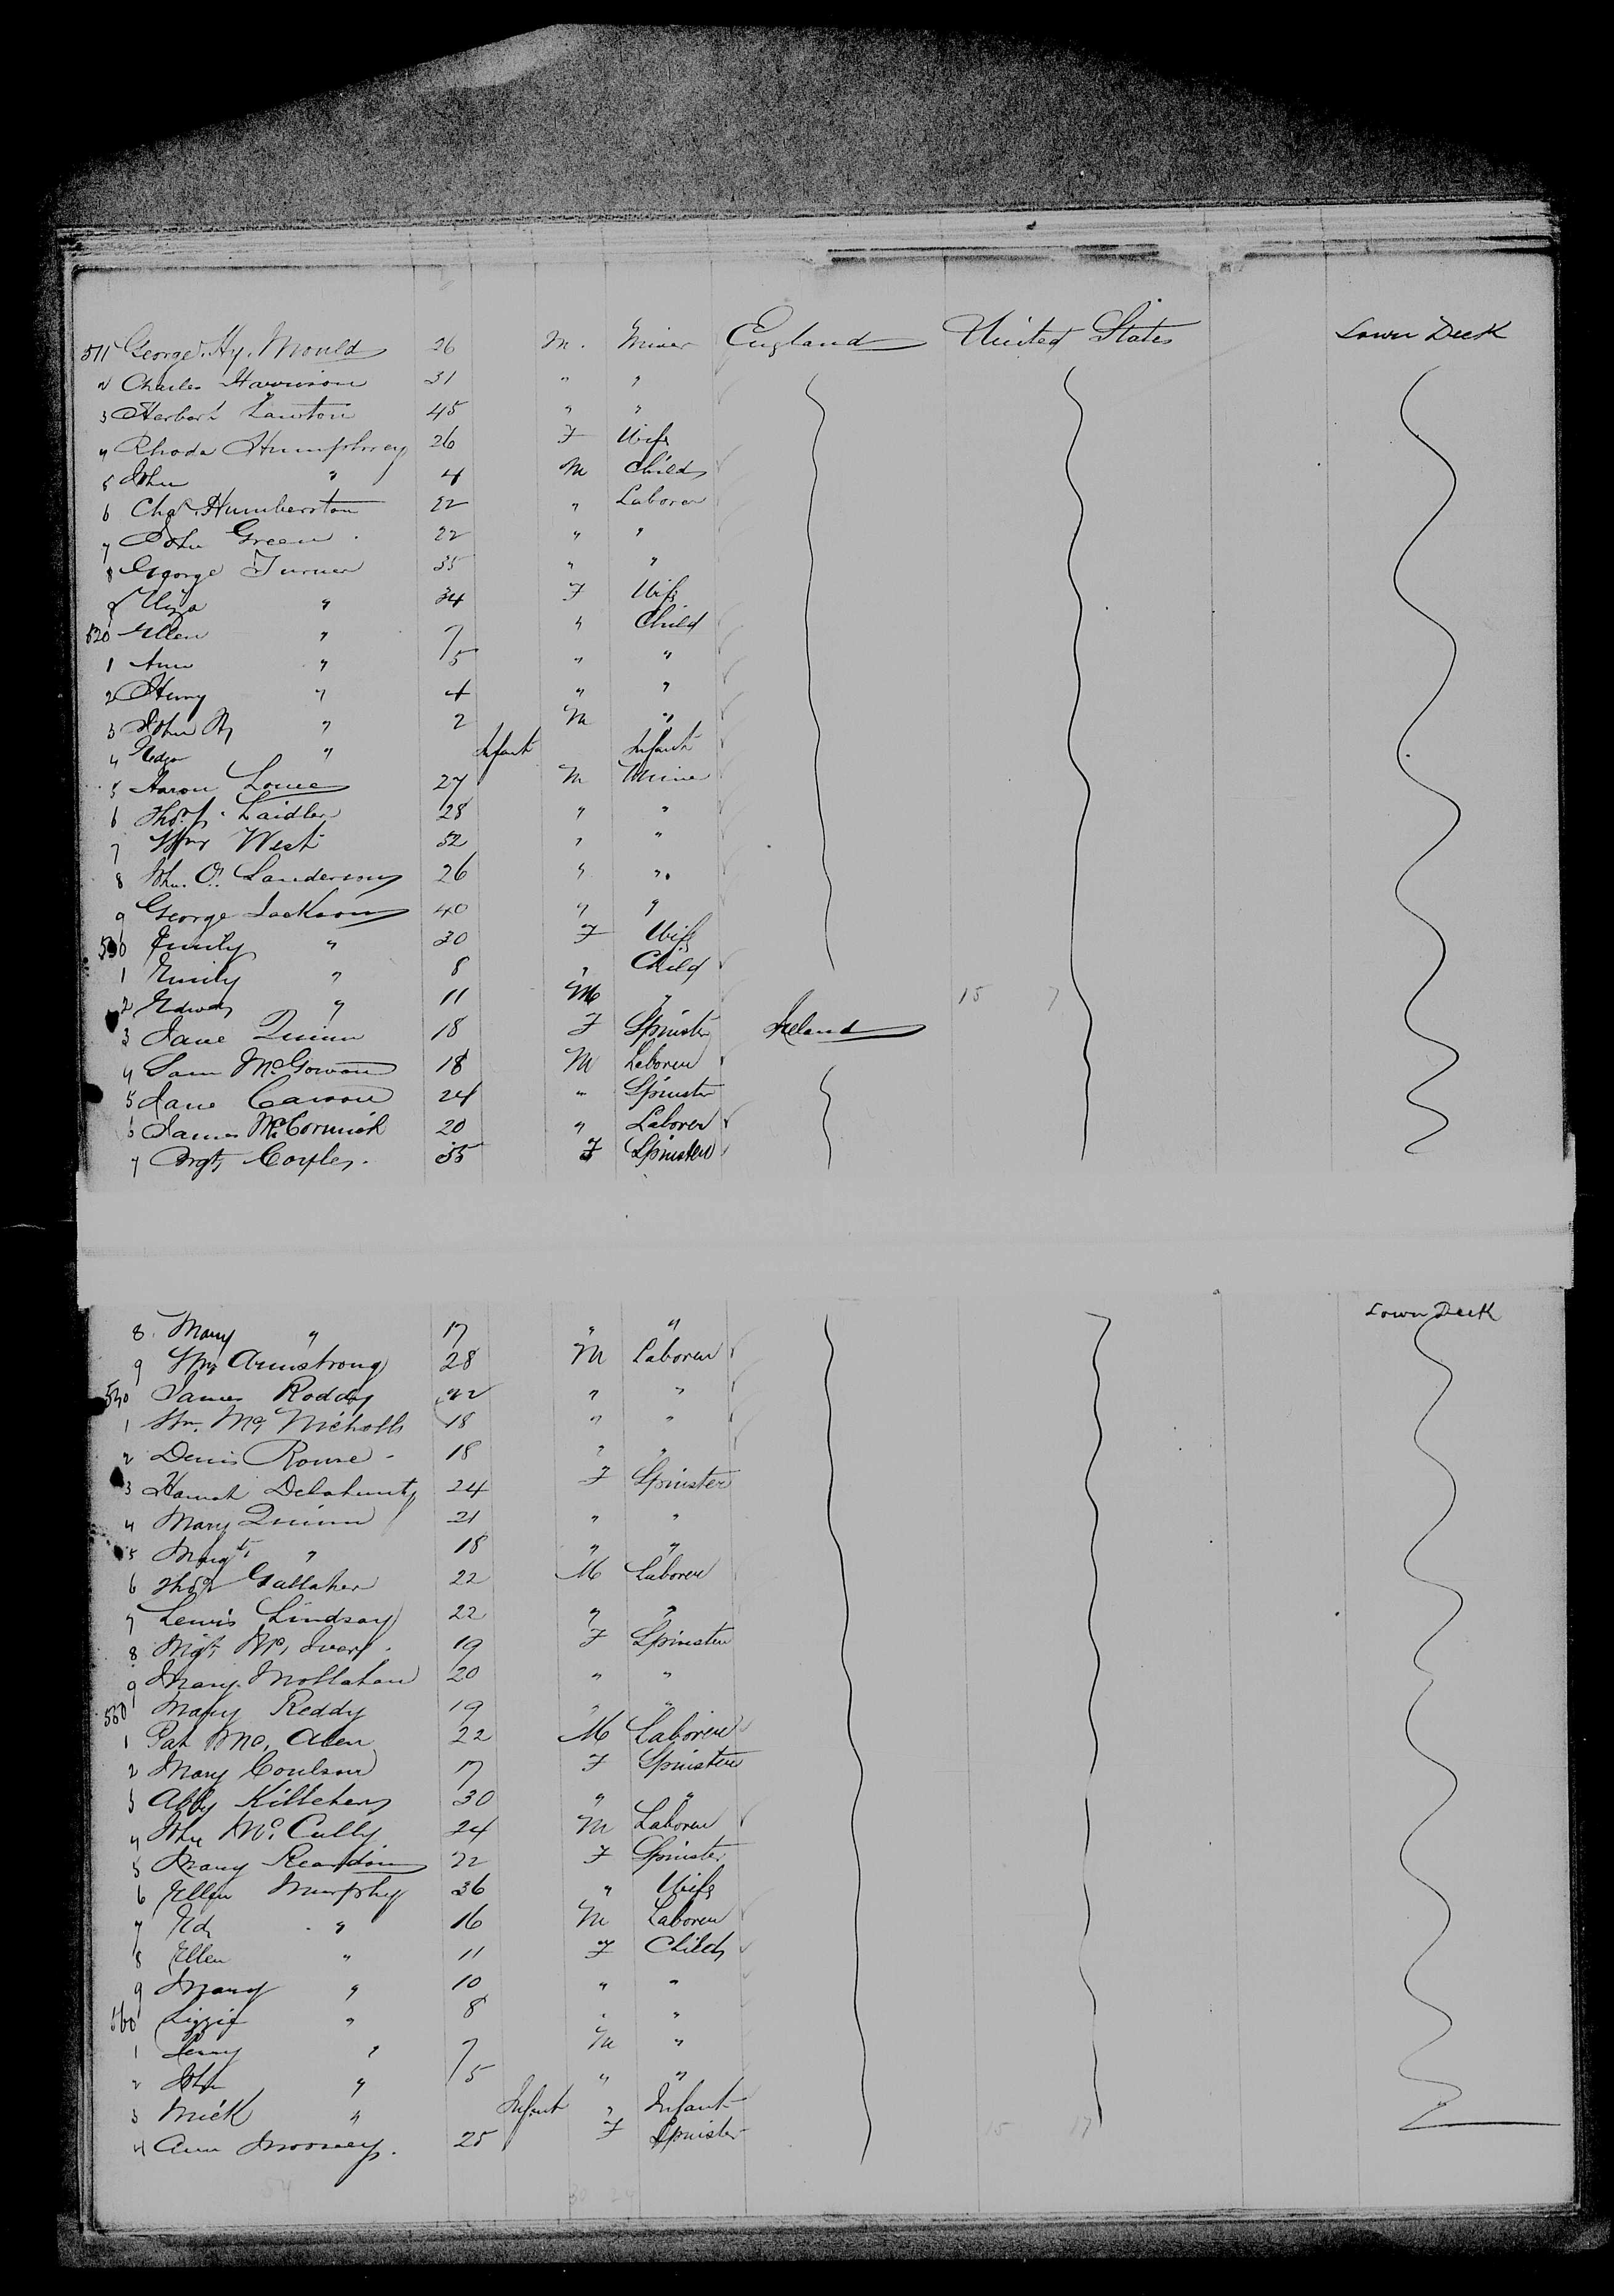 511 George Hy. Mould 26 M. Miner England United States Lower Deck
2 Charles Harrison 31 " "
3 Herbert Lawton 45 " "
4 Rhoda Humphrey 26 F Wife
5 John " 4 M Child
6 Chas. Humberston 22 " Laborer
7 John Green 22 " "
8 George Turner 35 " "
9 Eliza " 34 F Wife
520 Ellen " 7 " Child
1 Ann " 5 " "
2 Henry " 4 " "
3 John Hy " 2 M "
4 " Infant Infant
5 Aaron Lowe 27 M Miner
6 Thos. Laidler 28 " "
7 Wm West 52 " "
8 Jno. O. Sanderson 26 " "
9 George Jackson 40 " "
530 Emily " 30 F Wife
1 Emily " 8 " Child
2 Edwd " 11 M " 15 7
3 Jane Quinn 18 F Spinster Ireland
4 Sam McGowan 18 M Laborer
5 Jane Carson 24 " Spinster
6 James McCormick 20 " Laborer
7 Mgt. Coyle 35 F Spinster
8 Mary " 17 " " Lower Deck
9 Wm Armstrong 28 M Laborer
540 James Roddy 22 " "
1 Wm. Mc Nicholls 18 " "
2 Denis Roure 18 " "
3 Hannah Delahunty 24 F Spinster
4 Mary Quinn 21 " "
5 Margt. " 18 " "
6 Thos Gallaher 22 M Laborer
7 Lewis Lindsay 22 " "
8 Mgt. Mc. 19 F Spinster
9 Mary Mollahan 20 " "
550 Mary Reddy 19 " "
1 Pat Mc. Aleer 22 M Laborer
2 Mary Coulson 17 F Spinster
3 Abby Killehery 30 " "
4 John Mc. Cully 24 M Laborer
5 Mary Reardon 22 F Spinster
6 Ellen Murphy 36 " Wife
7 Ed " 16 M Laborer
8 Ellen " 11 F Child
9 Mary " 10 " "
560 Lizzie " 8 " "
1 Jerry " 7 M "
2 John " 5 " "
3 Mick " Infant " Infant
4 Ann Mooney. 25 F Spinster 15 17